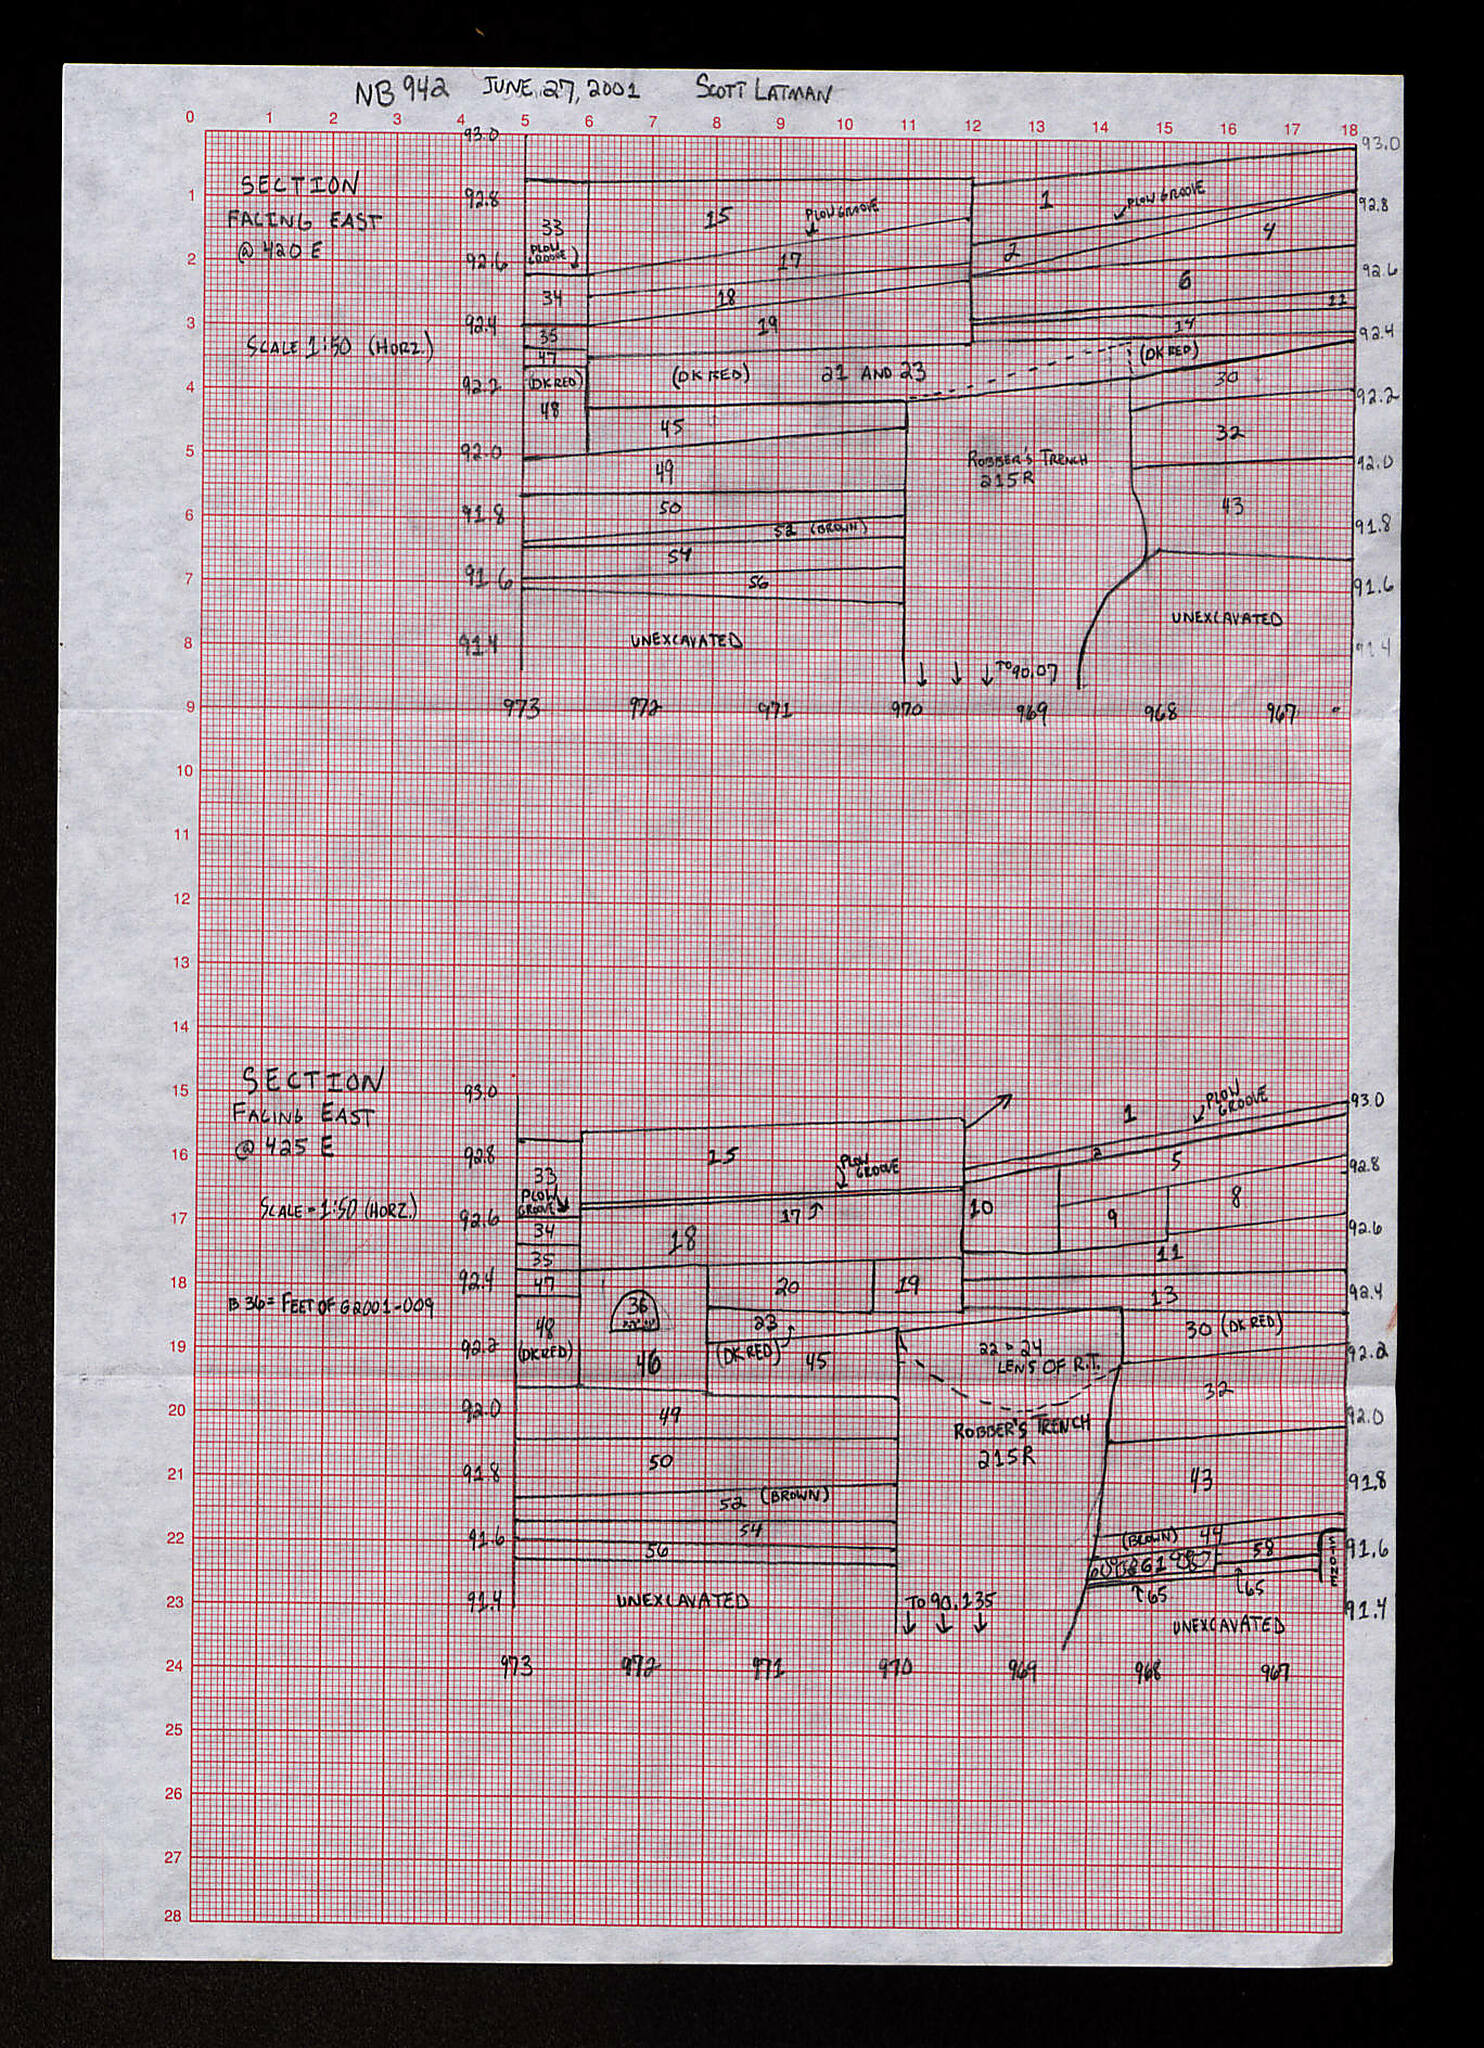 NB 942 JUNE 27, 2001 SCOTT LATMAN
0 1 2 3 4 5 6 7 8 9 10 11 12 13 14 15 16 17 18
93.0
93.0
SECTION
FACING EAST
@ 420 E
SCALE 1:50 (HORZ.)
1
2
3
4
5
6
7
8
9
92.8
92.6
92.4
92.2
92.0
91.8
91.6
91.4
33
PLOW
GROOVE
34
35
47
(DK RED)
48
15
PLOW GROOVE
17
18
19
(DK RED) 21 AND 23
45
49
50
52 (BROWN)
54
56
UNEXCAVATED
1
PLOW GROOVE
2
4
6
12
14
(DK RED)
30
32
43
ROBBER'S TRENCH
215R
UNEXCAVATED
TO 90.07
92.8
92.6
92.4
92.2
92.0
91.8
91.6
91.4
973 972 971 970 969 968 967
10
11
12
13
14
15
16
17
18
19
20
21
22
23
24
25
26
27
28
SECTION
FACING EAST
@ 425 E
SCALE = 1:50 (HORZ.)
B 36 = FEET OF G2001-009
93.0
92.8
92.6
92.4
92.2
92.0
91.8
91.6
91.4
33
PLOW
GROOVE
34
35
47
48
(DK RED)
15
PLOW
GROOVE
17
18
36
46
20
19
23
(DK RED)
45
49
50
52 (BROWN)
54
56
UNEXCAVATED
1
PLOW
GROOVE
2
5
10
9
8
11
13
30 (DK RED)
22 & 24
LENS OF R.T.
ROBBER'S TRENCH
215R
32
43
(BROWN) 44
58
61
65
65
STONE
UNEXCAVATED
TO 90.135
93.0
92.8
92.6
92.4
92.2
92.0
91.8
91.6
91.4
973 972 971 970 969 968 967